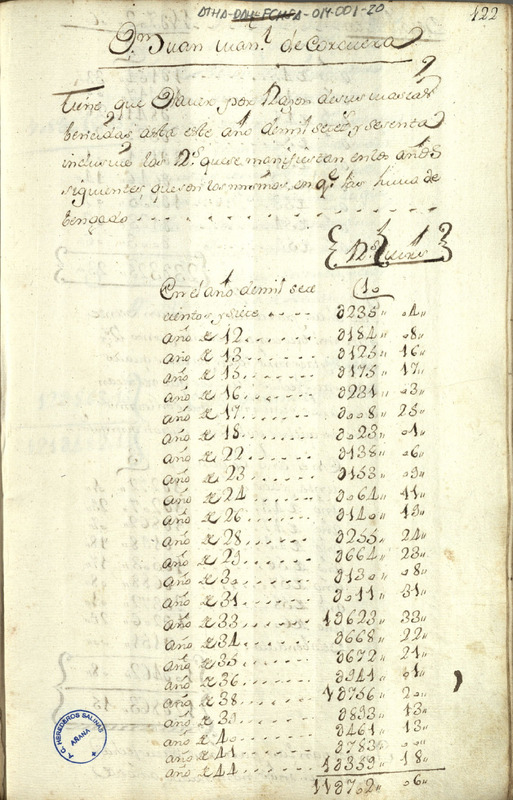 ATHA-DAH-FCHSA-014-001-20
422
Dn Juan Manl de Corcuera
Tiene que Haver por Razon de sus
bencidas asta este año de mil setes y sesenta
inclusive los Rs que se manifiestan en los años
siguientes que son los mismos, en qe las
bengado
Rs
En el año de mil sete
cientos y siete 10
año de 12 0184 08
año de 13 0125 16
año de 15 0175 17
año de 16 0231 03
año de 17 0008 25
año de 18 0023 01
año de 22 0138 06
año de 23 0153 09
año de 24 0064 11
año de 26 0140 19
año de 28 0255 24
año de 29 0664 23
año de 30 0130 08
año de 31 0011 31
año de 33 10623 33
año de 34 0668 22
año de 35 0672 21
año de 36 0941 01
año de 38 10756 20
año de 39 0893 13
año de 40 0461 13
año de 41 0783 00
año de 44 10359 18
06
Y C. HEREDEROS SALINAS
AÑANA